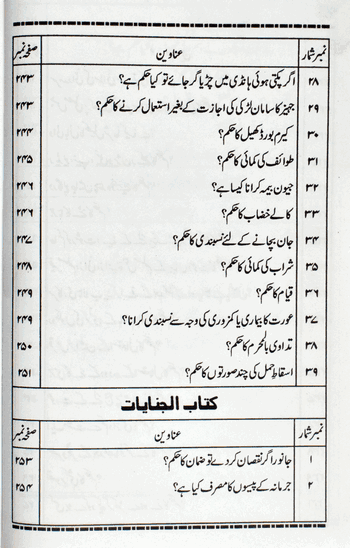 نمبر شمار عناوین صفحہ نمبر
۲۸ اگر پکتی ہوئی ہانڈی میں چڑیا گر جائے تو کیا حکم ہے؟ ۲۴۳
۲۹ جہیز کا سامان لڑکی کی اجازت کے بغیر استعمال کرنے کا حکم؟ ۲۴۳
۳۰ کیرم بورڈ کھیل کا حکم؟ ۲۴۴
۳۱ طوائف کی کمائی کا حکم؟ ۲۴۵
۳۲ جیون بیمہ کرانا کیسا ہے؟ ۲۴۶
۳۳ کالے خضاب کا حکم؟ ۲۴۶
۳۴ جان بچانے کے لئے نسبندی کا حکم؟ ۲۴۷
۳۵ شراب کی کمائی کا حکم؟ ۲۴۸
۳۶ قیام کا حکم؟ ۲۴۹
۳۷ عورت کا بیماری یا کمزوری کی وجہ سے نسبندی کرانا؟ ۲۴۹
۳۸ تداوی بالمحرم کا حکم؟ ۲۵۰
۳۹ اسقاط حمل کی چند صورتوں کا حکم؟ ۲۵۱
کتاب الجنایات
نمبر شمار عناوین صفحہ نمبر
۱ جانور اگر نقصان کر دے تو ضمان کا حکم؟ ۲۵۳
۲ جرمانہ کے پیسوں کا مصرف کیا ہے؟ ۲۵۴